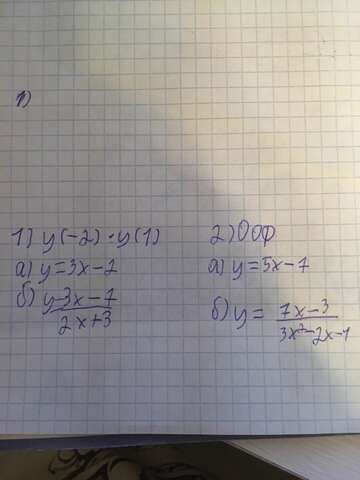 1)
1) y(-2) · y(1)
а) y=3x-2
б) y-3x-7
2x+3
2) ООФ
а) y=5x-7
б) y= 7x-3
3x²-2x-1